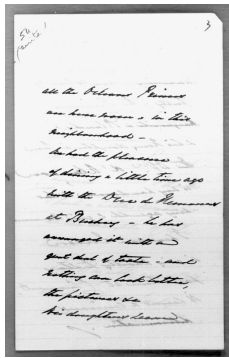 3
all the Orleans Princes
are here now & in this
neighbourhood –
we had the pleasure
of dining a little time ago
with the Duc de Nemours
at Bushey – he has
arranged it with a
great deal of taste – and
nothing can look better,
the pictures &c
his daughters